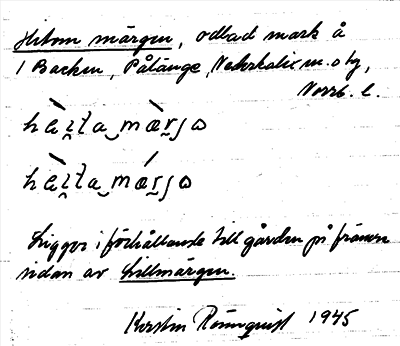 Hitom märgen, odlad mark å
1 Backen, Pålänge, Nederkalix sn. o hg,
Norrb. l.
Ligger i förhållande till gården på främre
sidan av Lillmärgen.
Kerstin Rönnquist 1945